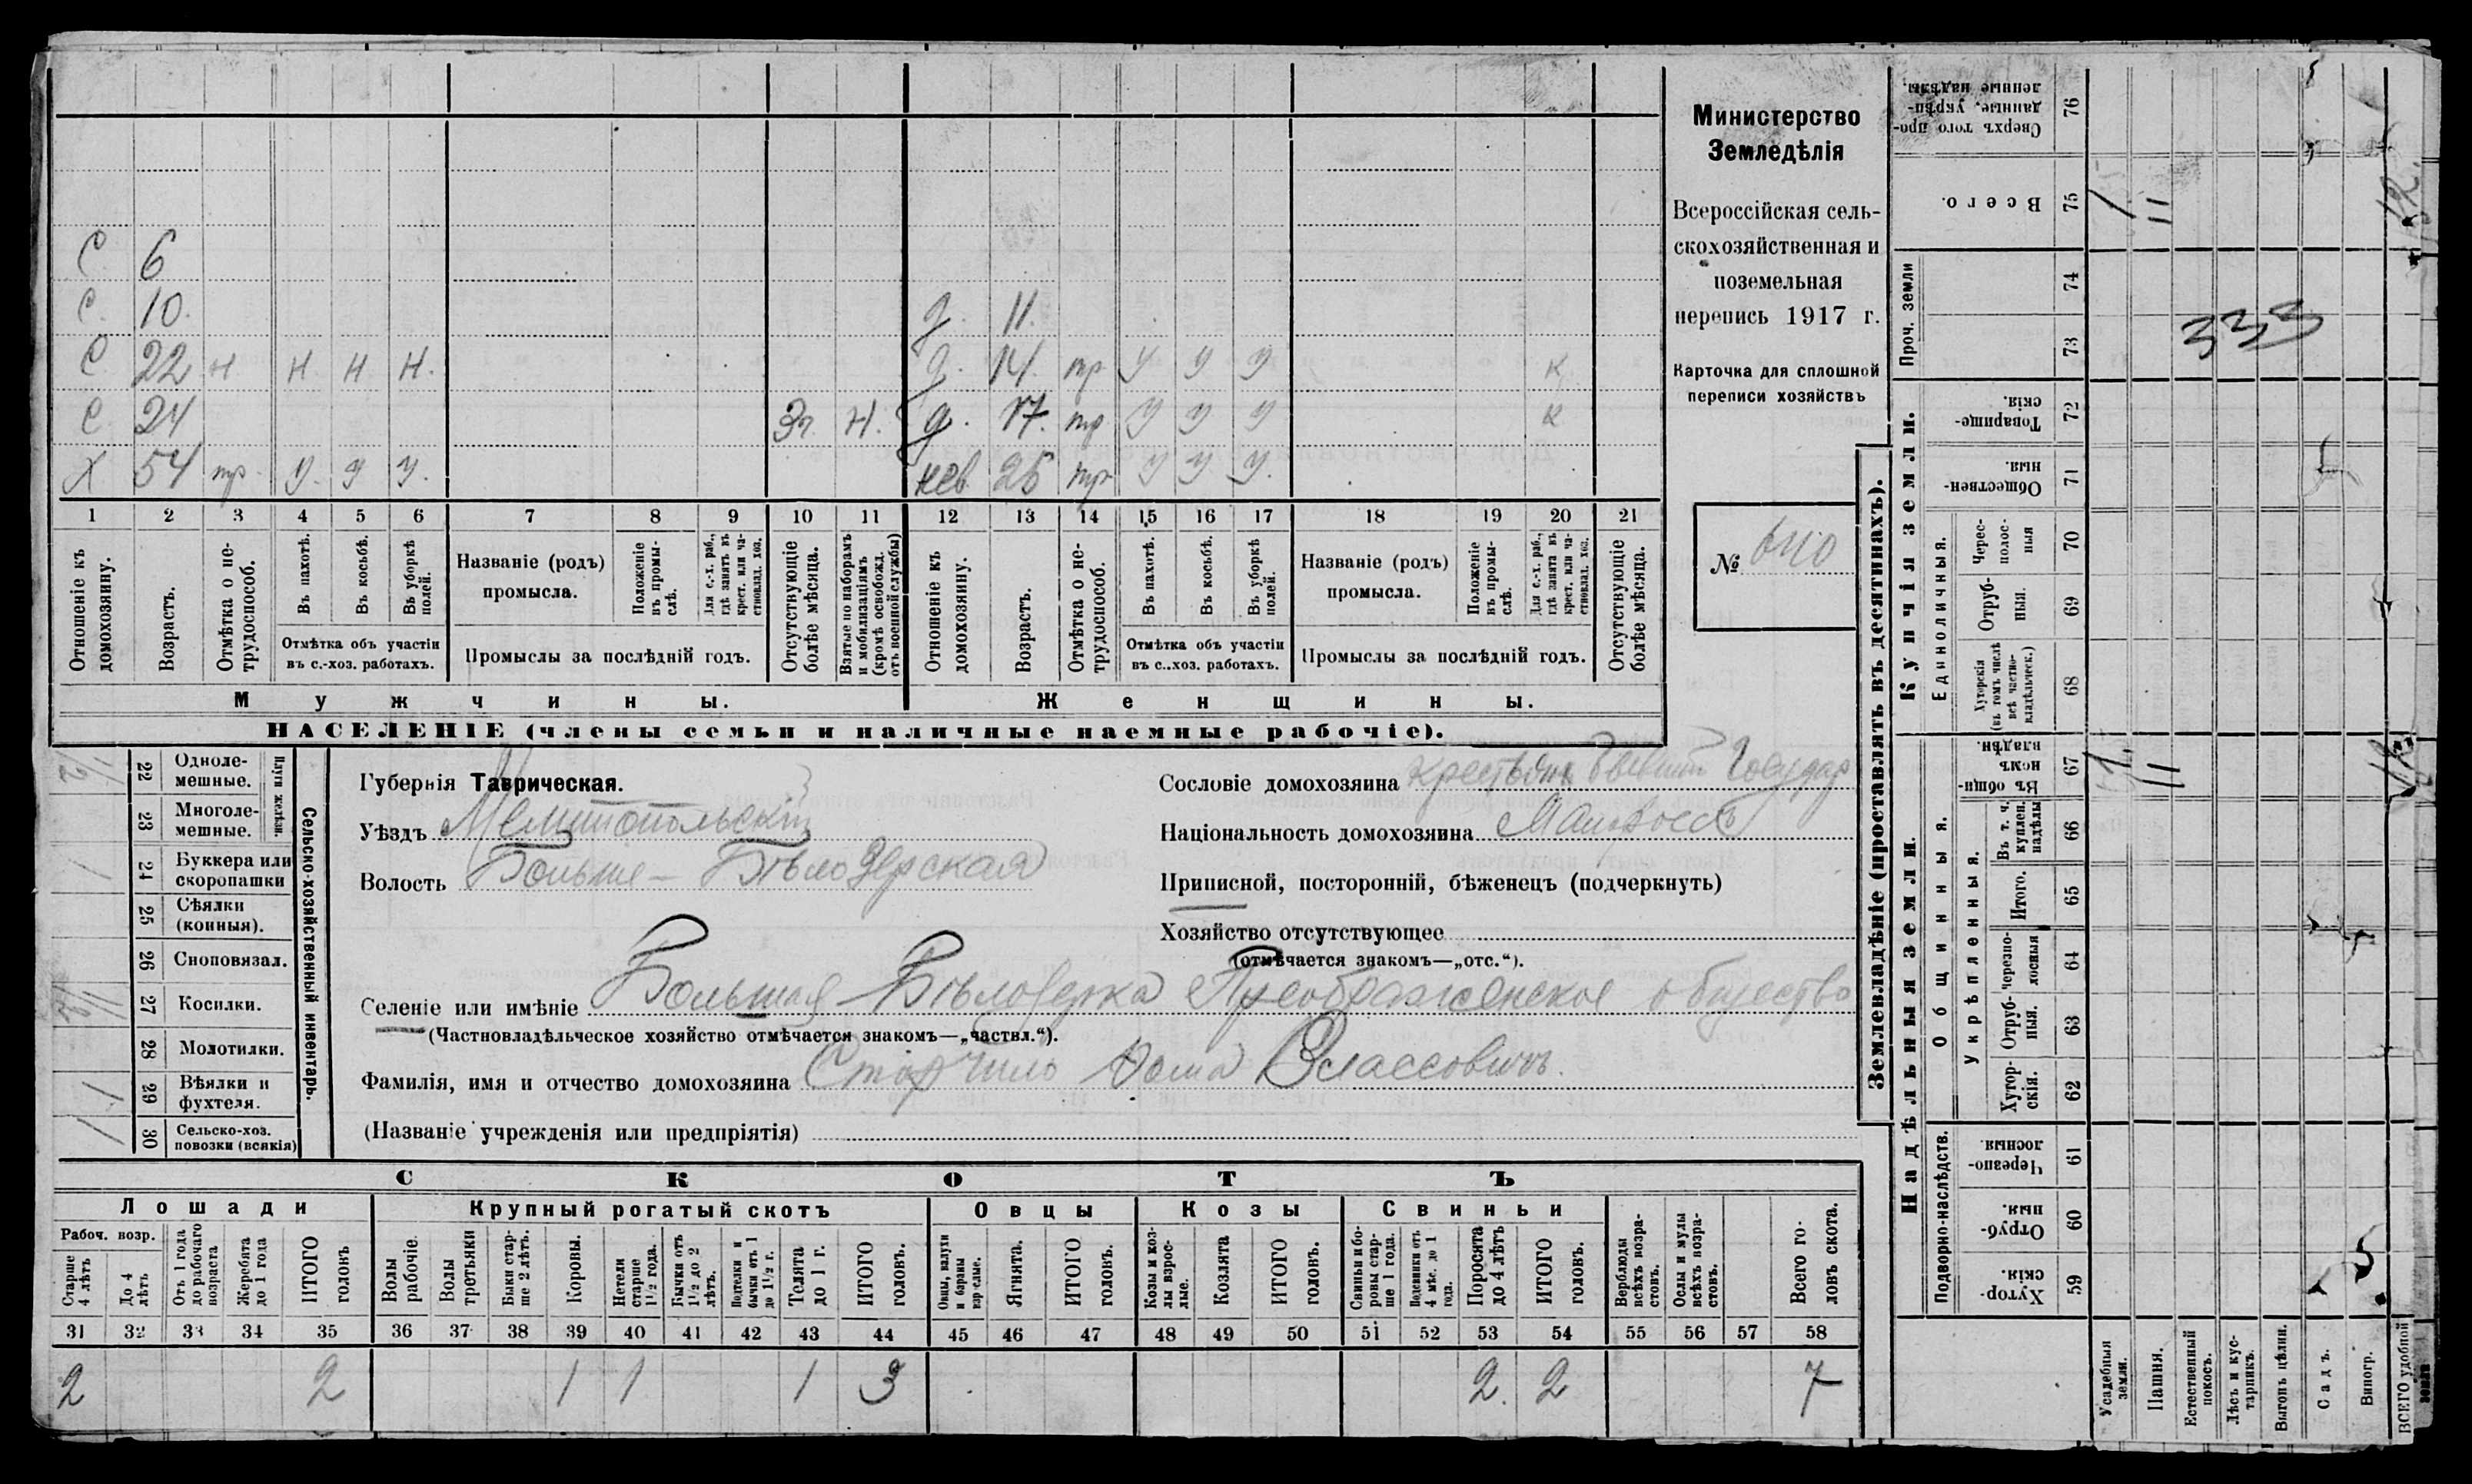 С 6
С. 10.
С 22 н н н н.
С 24 Эг. н.
Х 54 тр. у. у у.
д. 11.
д. 14. тр у у у к
д. 17. тр у у у к
нев 26 тр. у у у.
1 2 3 4 5 6 7 8 9 10 11 12 13 14 15 16 17 18 19 20 21
Отношеніе къ домохозяину.
Возрастъ.
Отмѣтка о не-
трудоспособ.
Въ пахотѣ.
Въ косьбѣ.
Въ уборкѣ
полей.
Отмѣтка объ участіи
въ с.-хоз. работахъ.
Названіе (родъ)
промысла.
Положеніе
въ промы-
слѣ.
Для с.-х. раб.,
гдѣ занятъ въ
крест. или ча-
стновлад. хоз.
Промыслы за послѣдній годъ.
Отсутствующіе
болѣе мѣсяца.
Взятые по наборамъ
и мобилизаціямъ
(кромѣ освобожд.
отъ военной службы)
Отношеніе къ
домохозяину.
Возрастъ.
Отмѣтка о не-
трудоспособ.
Въ пахотѣ.
Въ косьбѣ.
Въ уборкѣ
полей.
Отмѣтка объ участіи
въ с..хоз. работахъ.
Названіе (родъ)
промысла.
Положеніе
въ промы-
слѣ.
Для с.-х. раб.,
гдѣ занята въ
крест. или ча-
стновлад. хоз.
Промыслы за послѣдній годъ.
Отсутствующіе
болѣе мѣсяца.
Мужчины.
Женщины.
НАСЕЛЕНІЕ (члены семьи и наличные наемные рабочіе).
Министерство
Земледѣлія
Всероссійская сель-
скохозяйственная и
поземельная
перепись 1917 г.
Карточка для сплошной
переписи хозяйствъ
№
22 Одноле-
мешные.
23 Многоле-
мешные.
Плуги желѣзн.
24 Буккера или
скоропашки
25 Сѣялки
(конныя).
26 Сноповязал.
27 Косилки.
28 Молотилки.
29 Вѣялки и
фухтеля.
30 Сельско-хоз.
повозки (всякія)
Сельско-хозяйственный инвентарь.
Губернія Таврическая.
Уѣздъ Мелитопольскій
Волость Больше-Бѣлозерская
Сословіе домохозяина крестьян бывшій Государ
Національность домохозяина Малоросъ
Приписной, посторонній, бѣженецъ (подчеркнуть)
Хозяйство отсутствующее
(отмѣчается знакомъ—„отс.“).
Селеніе или имѣніе Большая Бѣлозерка Преображенское общество
(Частновладѣльческое хозяйство отмѣчается знакомъ—„частвл.“).
Фамилія, имя и отчество домохозяина Сторчило Фома Власовичъ.
(Названіе учрежденія или предпріятія)
СКОТЪ
Лошади Крупный рогатый скотъ Овцы Козы Свиньи
Рабоч. возр.
Старше
4 лѣтъ
До 4
лѣтъ
Отъ 1 года
до рабочаго
возраста
Жеребята
до 1 года
ИТОГО
головъ
Волы
рабочіе.
Волы
третьяки
Быки стар-
ше 2 лѣтъ.
Коровы.
Нетели
старше
1½ года.
Бычки отъ
1½ до 2
лѣтъ.
Подтелки и
бычки отъ 1
до 1½ г.
Телята
до 1 г.
ИТОГО
головъ.
Овцы, валухи
и бараны
взрослые.
Ягнята.
ИТОГО
головъ.
Козы и коз-
лы взрос-
лые.
Козлята
ИТОГО
головъ.
Свиньи и бо-
ровы стар-
ше 1 года.
Подсвинки отъ
4 мѣс. до 1
года.
Поросята
до 4 лѣтъ
ИТОГО
головъ.
Верблюды
всѣхъ возра-
стовъ.
Ослы и мулы
всѣхъ возра-
стовъ.
Всего го-
ловъ скота.
31 32 33 34 35 36 37 38 39 40 41 42 43 44 45 46 47 48 49 50 51 52 53 54 55 56 57 58
2 2 1 1 1 3 2. 2 7
Землевладѣніе (проставлять въ десятинахъ).
Купчія земли.
Надѣльныя земли.
Сверхъ того про-
данные, укрѣп-
ленные надѣлы.
76
Всего.
75
Проч. земли
74
73
333
Товарище-
скія.
72
Обществен-
ныя.
71
Единоличныя.
Черес-
полос-
ныя
70
Отруб-
ныя.
69
Хуторскія
(въ томъ числѣ
всѣ частно-
владѣльческ.)
68
Въ общи-
номъ
владѣн.
67
Общинныя.
Укрѣпленныя.
Въ т. ч.
куплен.
надѣлы
66
Итого.
65
черезпо-
лосныя
64
Отруб-
ныя.
63
Хутор-
скія.
62
Подворно-наслѣдств.
Черезпо-
лосныя.
61
Отруб-
ныя.
60
Хутор-
скія.
59
Усадебныя
земли.
Пашня.
Естественный
покосъ.
Лѣсъ и кус-
тарникъ.
Выгонъ цѣлин.
Садъ.
Виногр.
ВСЕГО удобной
земли